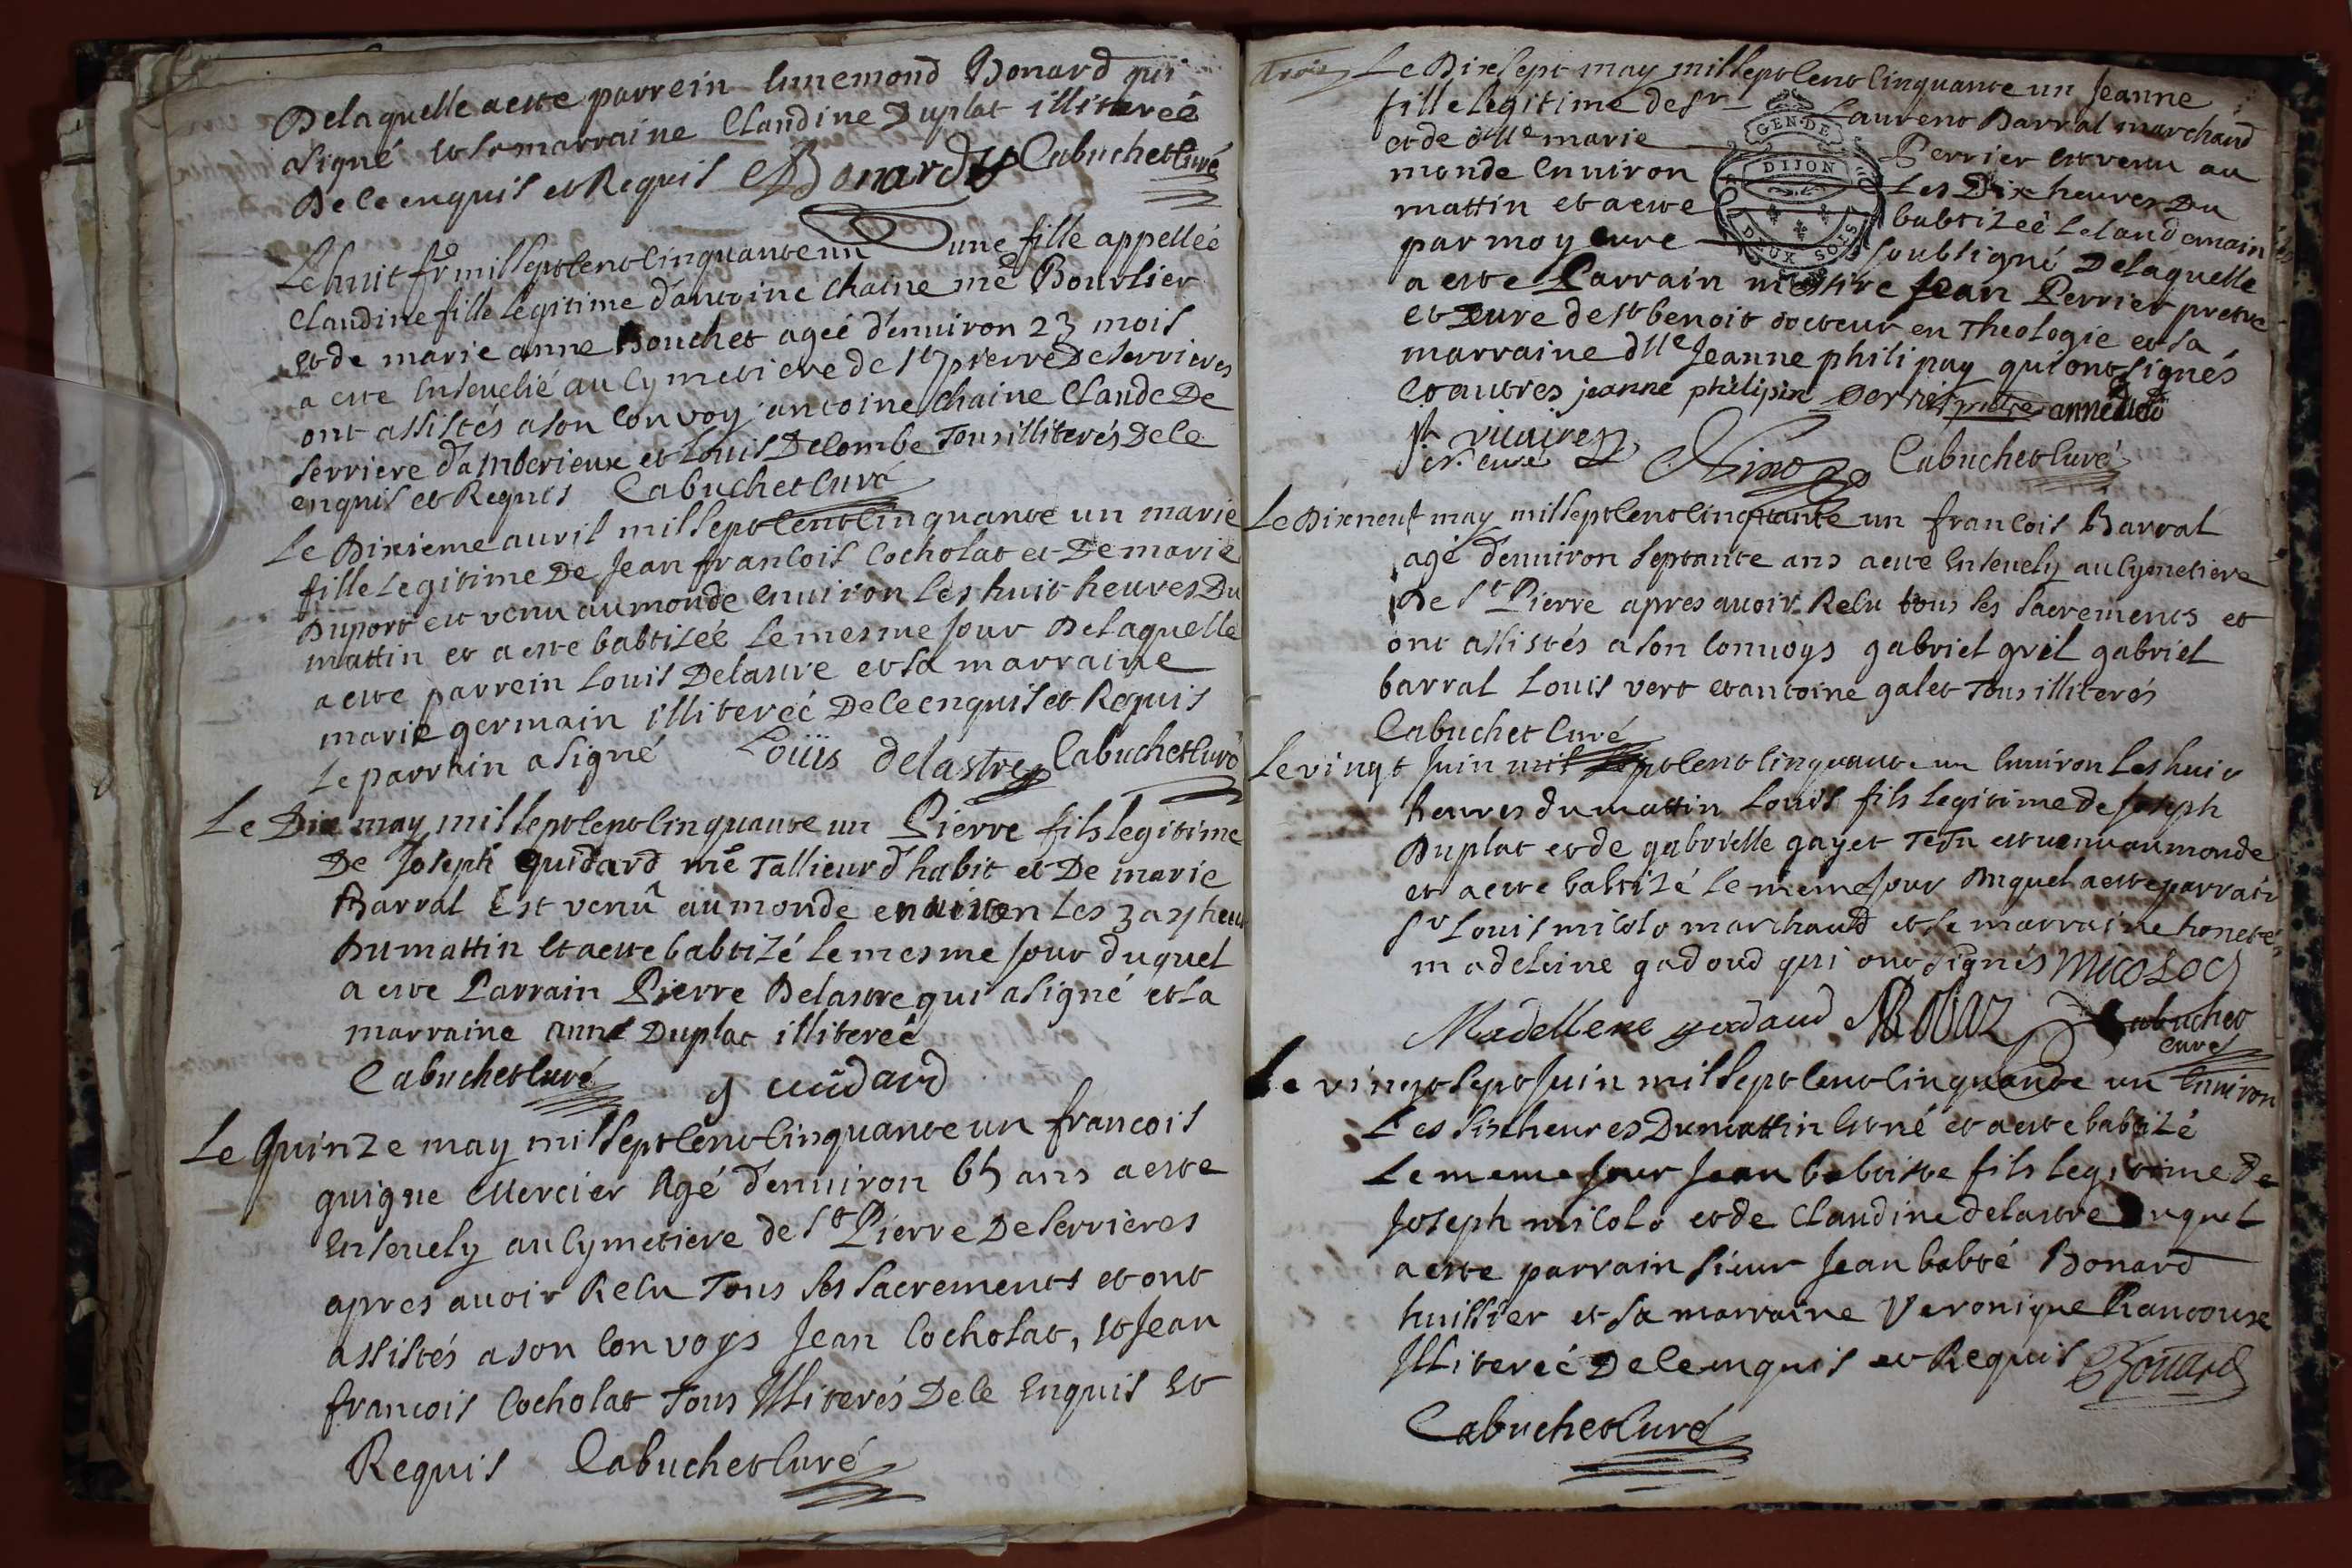 De laquelle a este parrein Ennemond Bonard qui
a signé et sa marraine Claudine Duplat illitereé
De ce enquis et Requis Bonard Cabuchet Curé
Le huit fr mil sept cent cinquante un une fille appelleé
Claudine fille legitime d'antoine chaine mẽ Bourlier
et de marie anne Bouchet ageé d'environ 23 mois
a este ensevelié au cymetiere de st pierre De serrieres
ont assistés a son convoy antoine chaine Claude De
serriere d'amberieux et Louis Delombe Tous illiterés De ce
enquis et Requis Cabuchet Curé
Le Dixieme avril mil sept cent cinquante un marie
fille legitime De Jean francois Cocholat et De marie
Duport est venu au monde environ Les huit heures Du
mattin et a este babtisée Le mesme jour De laquelle
a este parrein Louis Delastre et sa marraine
marie germain illitereé De ce enquis et Requis
Le parrain a signé Loüis delastre Cabuchet Curé
Le Dix may mil sept cent cinquante un Pierre fils legitime
De Joseph guidard mẽ Tallieur d'habit et De marie
Barral Est venû au monde environ Les 3 a 4 heur
Du mattin et a este babtizé Le mesme jour duquel
a este Parrain Pierre Delastre qui a signé et sa
marraine anne Duplat illitereé
Cabuchet Curé g cuidard
Le quinze may mil sept cent cinquante un francois
guigue Mercier Agé d'environ 65 ans a este
Ensevely au Cymetiere de st Pierre De serrieres
apres avoir Recu Tous ses sacrements et ont
assistés a son convoys Jean Cocholat, et Jean
francois Cocholat Tous Illiterés De ce Enquis et
Requis Cabuchet Curé
trois Le Dix sept may mil sept cent cinquante un Jeanne
fille legitime de sr Laurent Barral marchand
et de dlle marie Perrier est venu au
monde environ Les Dix heures Du
mattin et a este babtizeé Le landemain
par moy cure soubsigné De laquelle
a este Parrain messire Jean Perrier pretre
et Cure de st benoit docteur en Theologie et sa
marraine dlle Jeanne philipay qui ont signés
et autres jeanne philipin perrier pretre
vicaire
Cabuchet Curé
GEN DE
DIJON
DEUX SOLS
Le Dix neuf may mil sept cent cinquante un francois Barral
agé d'environ septante ans a este ensevely au cymetiere
De st Pierre apres avoir Recu tous les sacrements et
ont assistés a son convoys gabriel gril gabriel
barral Louis vert et antoine galet Tous illiterés
Cabuchet Curé
Le vingt Juin mil sept cent cinquante un environ Les huit
heures du mattin Louis fils legitime de Joseph
Duplat et de gabrielle gayet est venu au monde
et a este babtizé Le meme jour Duquel a este parrain
sr Louis micolo marchand et sa marraine honeste
madeleine gadoud qui ont signés micolo
Madellene godaud Cabuchet
curé
Le vingt sept Juin mil sept cent cinquante un Environ
Les six heures Du mattin est né et a este babtizé
Le meme jour Jean babtiste fils legitime De
Joseph micolo et de Claudine delastre Duquel
a este parrain sieur Jean babté Bonard
huissier et sa marraine Veronique
Illitereé De ce enquis et Requis Bonard
Cabuchet Curé